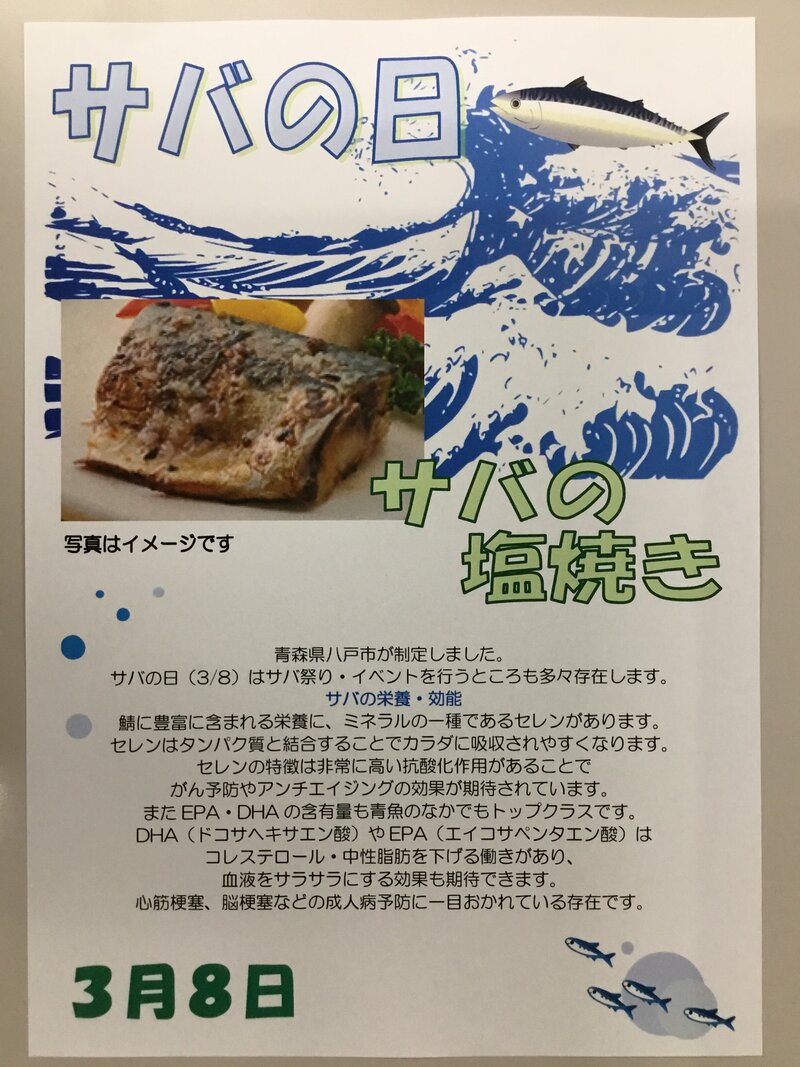 サバの日
サバの
塩焼き
写真はイメージです
青森県八戸市が制定しました。
サバの日（3/8）はサバ祭り・イベントを行うところも多々存在します。
サバの栄養・効能
鯖に豊富に含まれる栄養に、ミネラルの一種であるセレンがあります。
セレンはタンパク質と結合することでカラダに吸収されやすくなります。
セレンの特徴は非常に高い抗酸化作用があることで
がん予防やアンチエイジングの効果が期待されています。
またEPA・DHAの含有量も青魚のなかでもトップクラスです。
DHA（ドコサヘキサエン酸）やEPA（エイコサペンタエン酸）は
コレステロール・中性脂肪を下げる働きがあり、
血液をサラサラにする効果も期待できます。
心筋梗塞、脳梗塞などの成人病予防に一目おかれている存在です。
3月8日